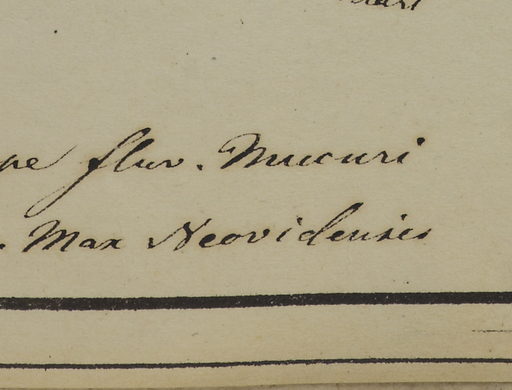 pe fluv. Mucuri
. Max Neovidensis